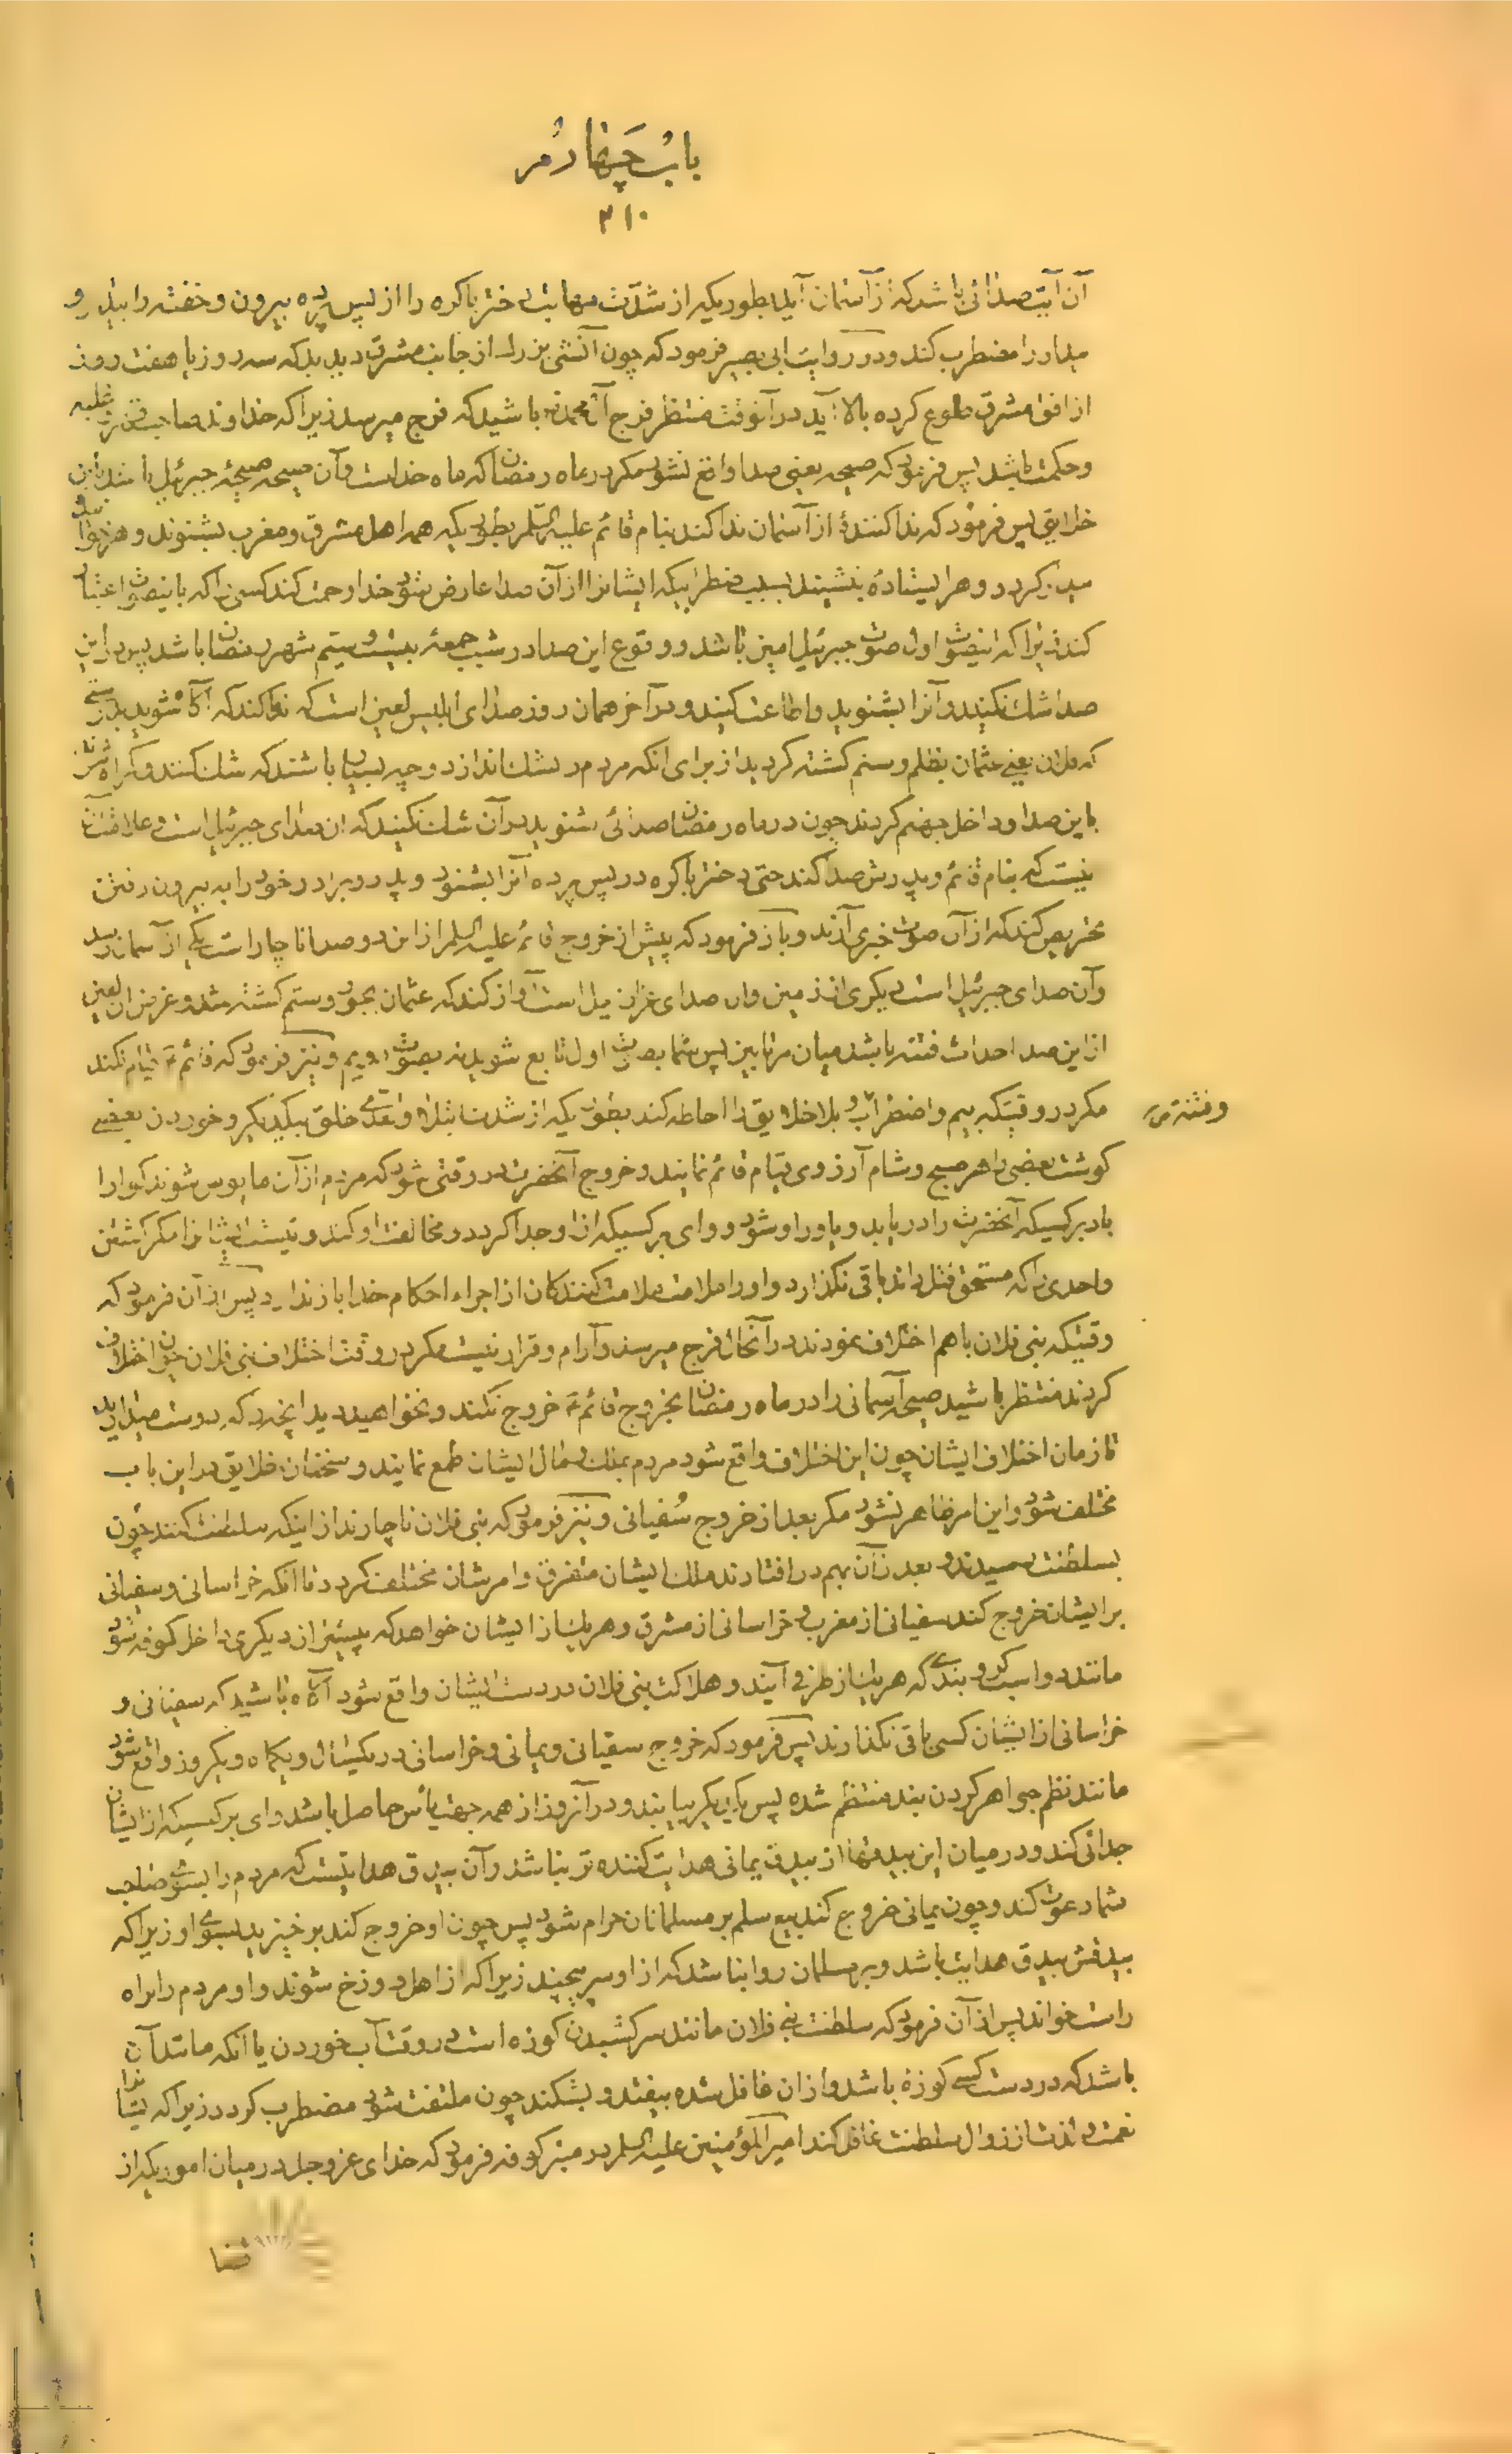 باب چهارم
۳۱۰
آن آیت صدائی باشد که از آسمان آید بطوریکه از شدت مهابت دختر باکره را از پس پرده بیرون و خفته را بیدار و
بیدار را مضطرب کند و در روایت ابی بصیر فرمود که چون آتشی بزرگ از جانب مشرق دیدید که سه روز یا هفت روز
از افق مشرق طلوع کرده بالا آید در آنوقت منتظر فرج آل محمد باشید که فرج میرسد زیرا که خداوند صاحب غلبه
و حکمت باشد پس فرمود که صیحه یعنی صدا واقع نشود مگر در ماه رمضان که ماه خداست و آن صیحه صیحۀ جبرئیل باشد باین
خلایق پس فرمود که نداکنندۀ از آسمان ندا کند بنام قائم علیه السلم بطوریکه همه اهل مشرق و مغرب بشنوند و هر خوابیده
بیدار گردد و هر ایستاده بنشیند بسبب اضطرابیکه ایشانرا از آن صدا عارض شود خدا رحمت کند کسی را که باینصوت اعتبار
کند زیرا که اینصوت اول صوت جبرئیل امین باشد و وقوع این صدا در شب جمعۀ بیست و سیم شهر رمضان باشد پس در این
صدا شک نکنید و آنرا بشنوید و اطاعت کنید و در آخر همان روز صدای ابلیس لعین است که ندا کند که آگاه شوید بدرستی
که فلان یعنی عثمان بظلم و ستم کشته گردید از برای آنکه مردم در شک اندازد و چه بسیار باشند که شک کنند و گمراه شوند
باین صدا و داخل جهنم گردند چون در ماه رمضان صدائی شنوید در آن شک نکنید که آن صدای جبرئیل است و علامت آن
نیست که بنام قائم و پدرش صدا کند حتی دختر باکره در پس پرده آنرا بشنود و پدر و برادر خود را به بیرون رفتن
تحریص کند که از آن صوت خبری آرند و باز فرمود که پیش از خروج قائم علیه السلم از این دو صدا ناچار است یکی از آسمان رسد
و آن صدای جبرئیل است دیگری از زمین و آن صدای عزازیل است آواز کند که عثمان بجور و ستم کشته شد و غرض آن لعین
از این صدا احداث فتنه باشد میان مرتابین پس شما بصوت اول تابع شوید نه بصوت دویم و نیز فرمود که قائم ع قیام نکند
مگر در وقتیکه بیم و اضطراب و بلا خلایق را احاطه کند بطوریکه از شدت ابتلا و تعدی خلق بیکدیگر و خوردن بعضی
و فتنه
گوشت بعضی را هر صبح و شام آرزوی قیام قائم نمایند و خروج آنحضرت در وقتی شود که مردم از آن مایوس شوند گوارا
باد بر کسیکه آنحضرت را دریابد و یاور او شود و وای بر کسیکه از او جدا گردد و مخالفت او کند و نیست مگر کشتن
واحدی را که مستحق قتل داند باقی نگذارد و او را ملامت ملامت کنندگان از اجراء احکام خدا باز ندارد پس از آن فرمود که
وقتیکه بنی فلان باهم اختلاف نمودند در آنحال فرج میرسد و آرام و قرار نیست مگر در وقت اختلاف بنی فلان چون اختلاف
کردند منتظر باشید صیحۀ آسمانی را در ماه رمضان بخروج قائم ع خروج نکند و نخواهید دید آنچه را که دوست میدارید
تا زمان اختلاف ایشان چون این اختلاف واقع شود مردم بملک و مال ایشان طمع نمایند و سخنان خلایق در این باب
مختلف شود و این امر ظاهر نشود مگر بعد از خروج سفیانی و نیز فرمود که بنی فلان ناچارند از اینکه سلطنت کنند چون
بسلطنت رسیدند و بعد از آن بهم در افتادند ملک ایشان متفرق و امرشان مختلف گردد تا آنکه خراسانی و سفیانی
بر ایشان خروج کند سفیانی از مغرب و خراسانی از مشرق و هر یک از ایشان خواهد که پیشتر از دیگری داخل کوفه شود
مانند دو اسب گرو بندی که هر یک از طرفی آیند و هلاکت بنی فلان در دست ایشان واقع شود آگاه باشید که سفیانی و
خراسانی از ایشان کسی باقی نگذارند پس فرمود که خروج سفیانی و یمانی و خراسانی در یکسال و یکماه و یکروز واقع شود
مانند نظم جواهر گردن بند منتظم شده پس یکدیگر بیایند و در آنروز از همه جهت یأس حاصل باشد وای بر کسیکه از ایشان
جدائی کند و در میان این بیدقها از بیدق یمانی هدایت کننده تر نباشد و آن بیدق هدایتست که مردم را بسوی صاحب
شما دعوت کند و چون یمانی خروج کند بیع سلم بر مسلمانان حرام شود پس چون او خروج کند برخیزید بسوی او زیرا که
بیدقش بیدق هدایت باشد و بر مسلمان روا نباشد که از او سر پیچند زیرا که از اهل دوزخ شوند و او مردم را براه
راست خواند پس از آن فرمود که سلطنت بنی فلان مانند سر کشیدن کوزه است در وقت آب خوردن یا آنکه مانند آن
باشد که در دست کسی کوزه باشد و از آن غافل شده بیفتد و بشکند چون ملتفت شود مضطرب گردد زیرا که ایشانرا
نعمت از زوال سلطنت غافل کند امیر المؤمنین علیه السلم در منبر کوفه فرمود که خدای عز و جل در میان اموریکه از
قضا